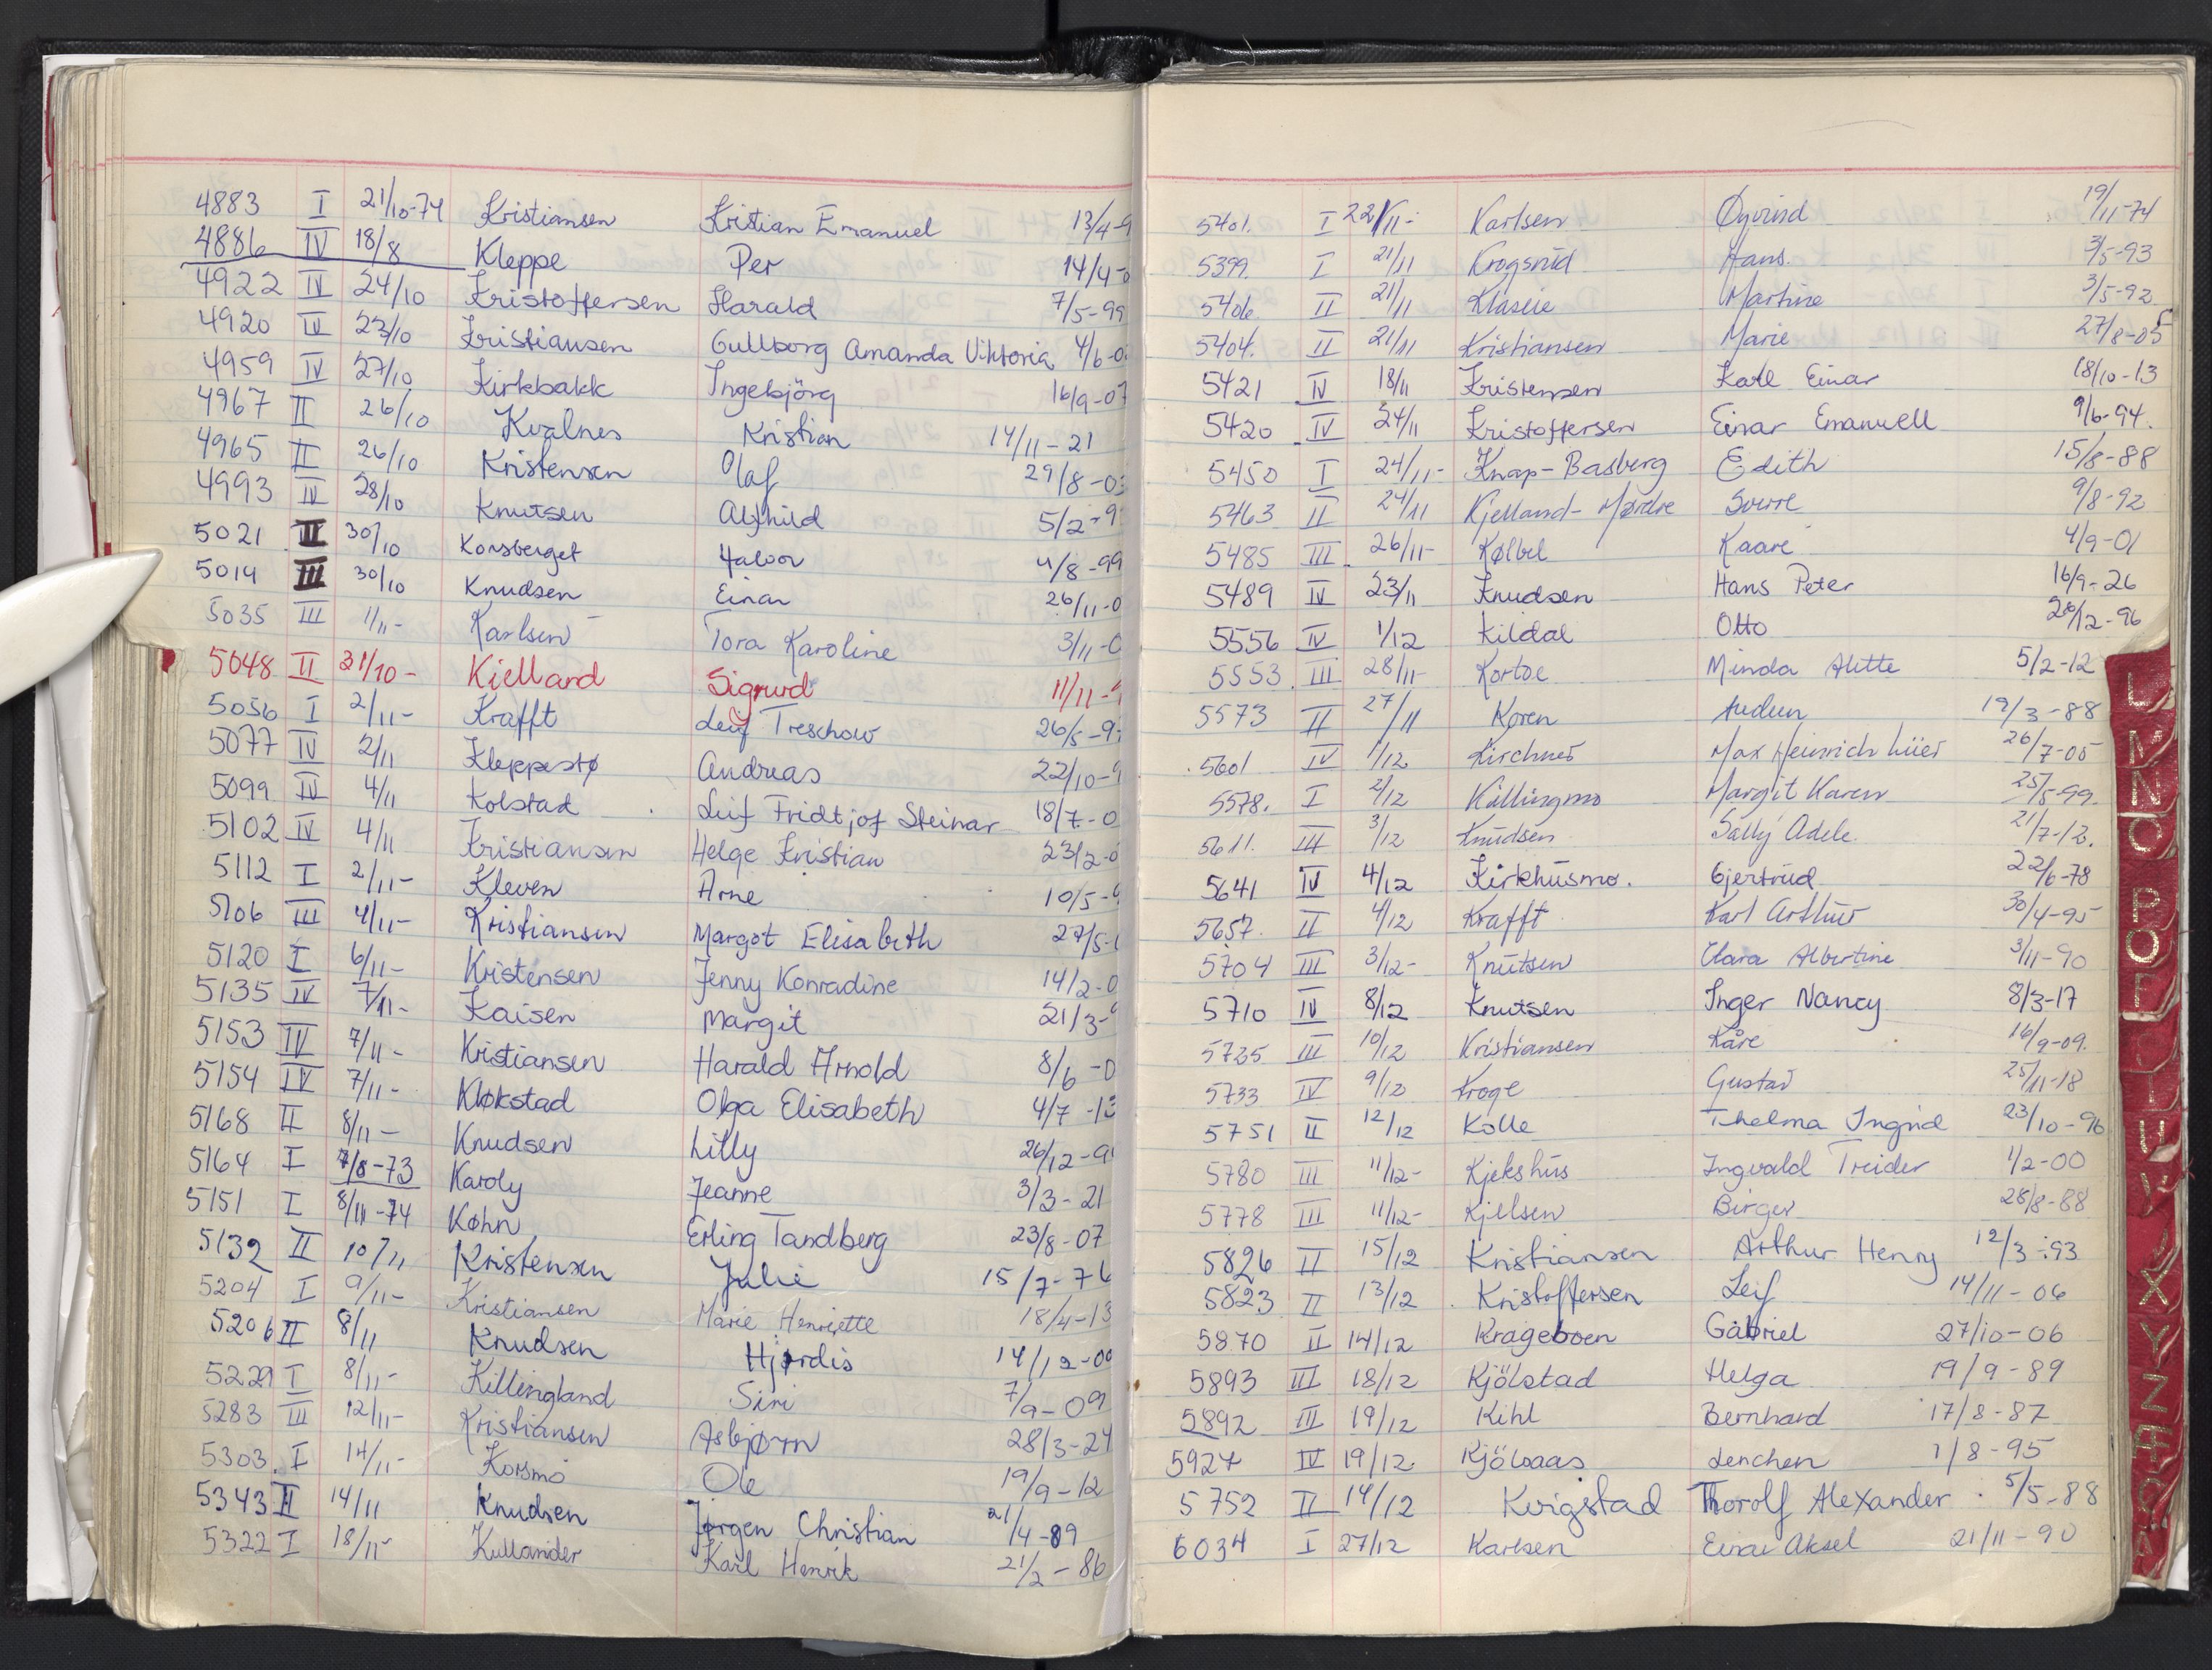 4883 I 21/10-74 Kristiansen Kristian Emanuel 13/4-9
4886 IV 18/8 Kleppe Per 14/4-0
4922 IV 24/10 Kristoffersen Harald 7/5-99
4920 IV 23/10 Kristiansen Gullborg Amanda Viktoria 4/6-0
4959 IV 27/10 Kirkbakk Ingebjörg 16/9-07
4967 II 26/10 Kvalnes Kristian 14/11-21
4965 II 26/10 Kristensen Olaf 29/8-03
4993 IV 28/10 Knutsen Alfhild 5/2-9
5021 II 30/10 Korsberget Halvor 4/8-99
5014 III 30/10 Knudsen Einar 26/11-0
5035 III 1/11- Karlsen Tora Karoline 3/11-0
5048 II 31/10- Kielland Sigurd 11/11-9
5056 I 2/11- Krafft Leif Treschow 26/5-9
5077 IV 2/11 Kleppestø Andreas 22/10-9
5099 IV 4/11 Kolstad Leif Fridtjof Steinar 18/7-0
5102 IV 4/11 Kristiansen Helge Kristian 23/2-0
5112 I 2/11- Kleven Arne 10/5-9
5106 III 4/11- Kristiansen Margot Elisabeth 27/5-
5120 I 6/11- Kristensen Jenny Konradine 14/2-0
5135 IV 7/11- Kaisen Margit 21/3-9
5153 IV 7/11- Kristiansen Harald Arnold 8/6-0
5154 IV 7/11- Kløkstad Olga Elisabeth 4/7-13
5168 II 8/11- Knudsen Lilly 26/12-9
5164 I 7/8-73 Karoly Jeanne 3/3-21
5151 I 8/11-74 Køhn Erling Tandberg 23/8-07
5132 II 10/11 Kristensen Julie 15/7-76
5204 I 9/11- Kristiansen Marie Henriette 18/4-13
5206 II 8/11 Knudsen Hjørdis 14/12-00
5229 I 8/11- Killingland Siri 7/9-09
5283 III 12/11- Kristiansen Asbjørn 28/3-24
5303. I 14/11- Korsmo Ole 19/9-12
5343 II 14/11 Knudsen Jørgen Christian 21/4-89
5322 I 18/11- Kullander Karl Henrik 21/2-86
5401. I 22/11- Karlsen Øyvind 19/11-74
5399. I 21/11 Krogsrud Hans. 3/5-93
5406. II 21/11 Martine 3/5-92
5404. II 21/11 Kristiansen Marie 27/8-05
5421 IV 18/11 Kristensen Karl Einar 18/10-13
5420 IV 24/11 Kristoffersen Einar Emanuell 9/6-94.
5450 I 24/11- Knap-Basberg Edith 15/8-88
5463 II 24/11 Kjelland-Mørdre Sverre 9/8-92
5485 III 26/11- Kølbel Kaare 4/9-01
5489 IV 23/11 Knudsen Hans Peter 16/9-26
5556 IV 1/12 Kildal Otto 20/12-96
5553 III 28/11- Kortoe Minda Alette 5/2-12
5573 II 27/11 Koren Audun 19/3-88
5601 IV 1/12 Kirchner Max Heinrich 26/7-05
5578. I 2/12 Killingmo Margit Karen 25/5-99
5611. III 3/12 Knudsen Sally Adele 21/7-12.
5641 IV 4/12 Kirkhusmo. Gjertrud 22/6-78
5657. II 4/12 Krafft Karl Arthur 30/4-95
5704 III 3/12- Knutsen Clara Albertine 3/11-90
5710 IV 8/12 Knutsen Inger Nancy 8/3-17
5725 III 10/12 Kristiansen Kåre 16/9-09.
5733 IV 9/12 Kroge Gustav 25/11-18
5751 II 12/12 Kolle Thelma Ingrid 23/10-96
5780 III 11/12- Kjekshus Ingvald Treider 1/2-00
5778 III 11/12- Kjelsen Birger 28/8-88
5826 II 15/12 Kristiansen Arthur Henry 12/3-93
5823 II 13/12 Kristoffersen Leif 14/11-06
5870 II 14/12 Krageboen Gabriel 27/10-06
5893 III 18/12 Kjölstad Helga 19/9-89
5892 III 19/12 Kihl Bernhard 17/8-87
5927 IV 19/12 Kjölaas Lenchen 1/8-95
5752 II 14/12 Kvigstad Thorolf Alexander 5/5-88
6034 I 27/12 Karlsen Einar Aksel 21/11-90
L
M
N
O
P
Q